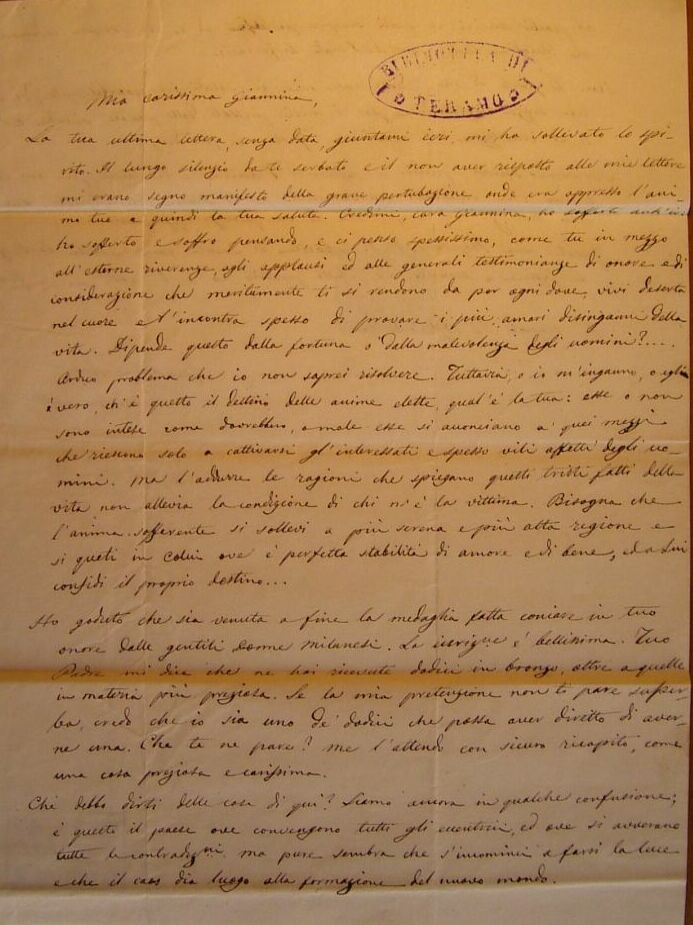 BIBLIOTECA DI
TERAMO
Mia carissima Giannina,
La tua ultima lettera, senza data, giuntami ieri, mi ha sollevato lo spi-
rito. Il lungo silenzio da te serbato e il non aver risposto alle mie lettere
mi erano segno manifesto della grave pertubazione onde era appresso l'ani-
mo tuo e quindi la tua salute. Credimi, cara Giannina, ho sofferto anch'io
ho sofferto e soffro pensando, e ci penso spessissimo, come tu in mezzo
all'esterne riverenze, agli applausi ed alle generali testimonianze di onore e di
considerazione che meritamente ti si rendono da per ogni dove, vivi deserta
nel cuore e t'incontra spesso di provare i più amari disinganni della
vita. Dipende questo dalla fortuna o dalla malevolenza degli uomini?....
Arduo problema che io non saprei risolvere. Tuttavia, o io m'inganno, o egli
è vero, ch'è questo il destino delle anime elette, qual'è la tua: esse o non
sono intese come dovrebbero, o male esse si acconciano a quei mezzi
che riescono solo a cattivarsi gl'interessati e spesso vili affetti degli uo-
mini. Ma l'addurre le ragioni che spiegano questi tristi fatti della
vita non allevia la condizione di chi n'è la vittima. Bisogna che
l'anima sofferente si sollevi a più serena e più alta regione e
si queti in colui ove è perfetta stabilità di amore e di bene, ed a Lui
confidi il proprio destino...
Ho goduto che sia venuta a fine la medaglia fatta coniare in tuo
onore dalle gentili donne Milanesi. La è bellissima. Tuo
Padre mi dice che ne hai ricevute dodici in bronzo, oltre a quelle
in materia più preziosa. Se la mia pretenzione non ti pare super-
ba, credo che io sia uno de' dodici che possa aver diretto di aver-
ne una. Che te ne pare? Me l'attendo con sicuro ricapito, come
una cosa preziosa e carissima.
Che debbo dirti delle cose di qui? Siamo ancora in qualche confusione;
è questo il paese ove convengono tutti gli eccentrici, ed ove si avverano
tutte le contradizioni. Ma pure sembra che s'incominci a farsi la luce
e che il caos dia luogo alla formazione del nuovo mondo.